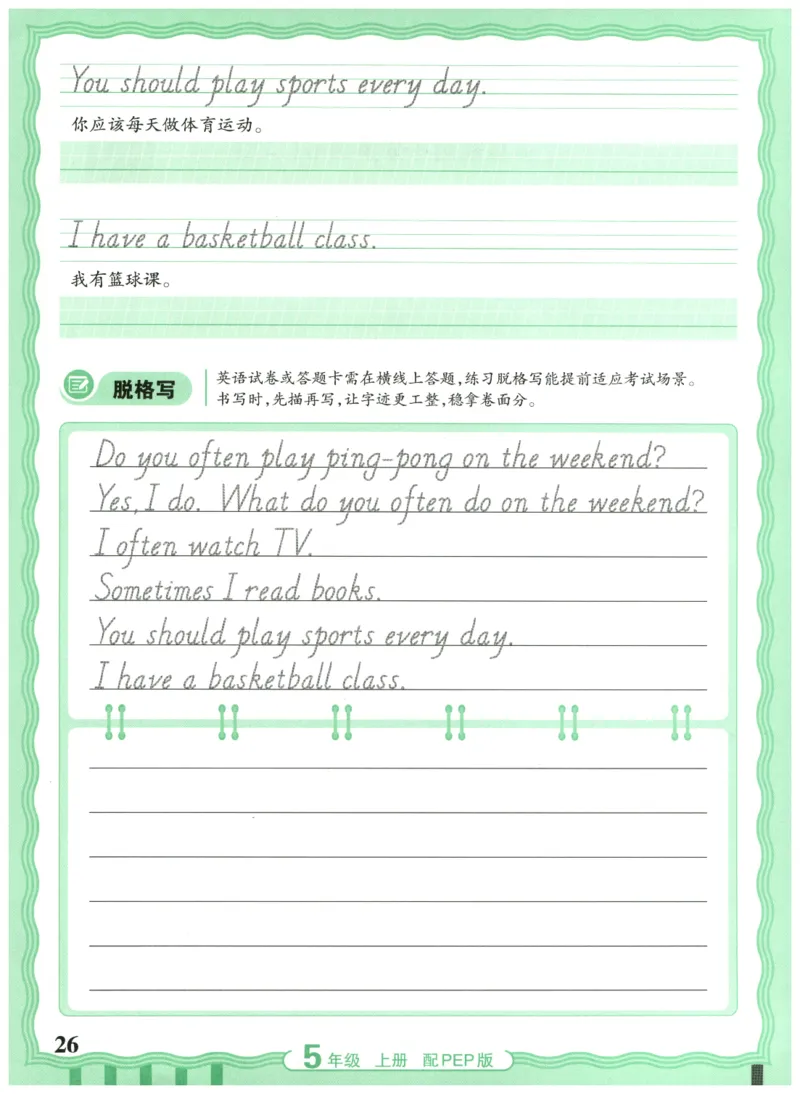 You should play sports every day.
你应该每天做体育运动。
I have a basketball class.
我有篮球课。
脱格写
英语试卷或答题卡需在横线上答题,练习脱格写能提前适应考试场景。
书写时,先描再写,让字迹更工整,稳拿卷面分。
Do you often play ping-pong on the weekend?
Yes, I do. What do you often do on the weekend?
I often watch TV.
Sometimes I read books.
You should play sports every day.
I have a basketball class.
26
5年级 上册 配PEP版